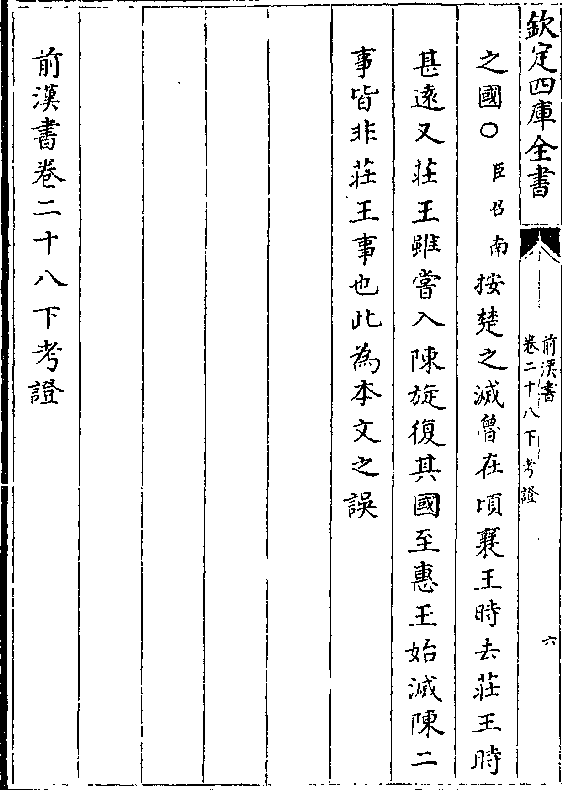 欽定四庫全書
前漢書
卷二十八下考證
六
之國○臣召南按楚之滅魯在頃襄王時去莊王時
甚遠又莊王雖嘗入陳旋復其國至惠王始滅陳二
事皆非莊王事也此為本文之誤
前漢書卷二十八下考證